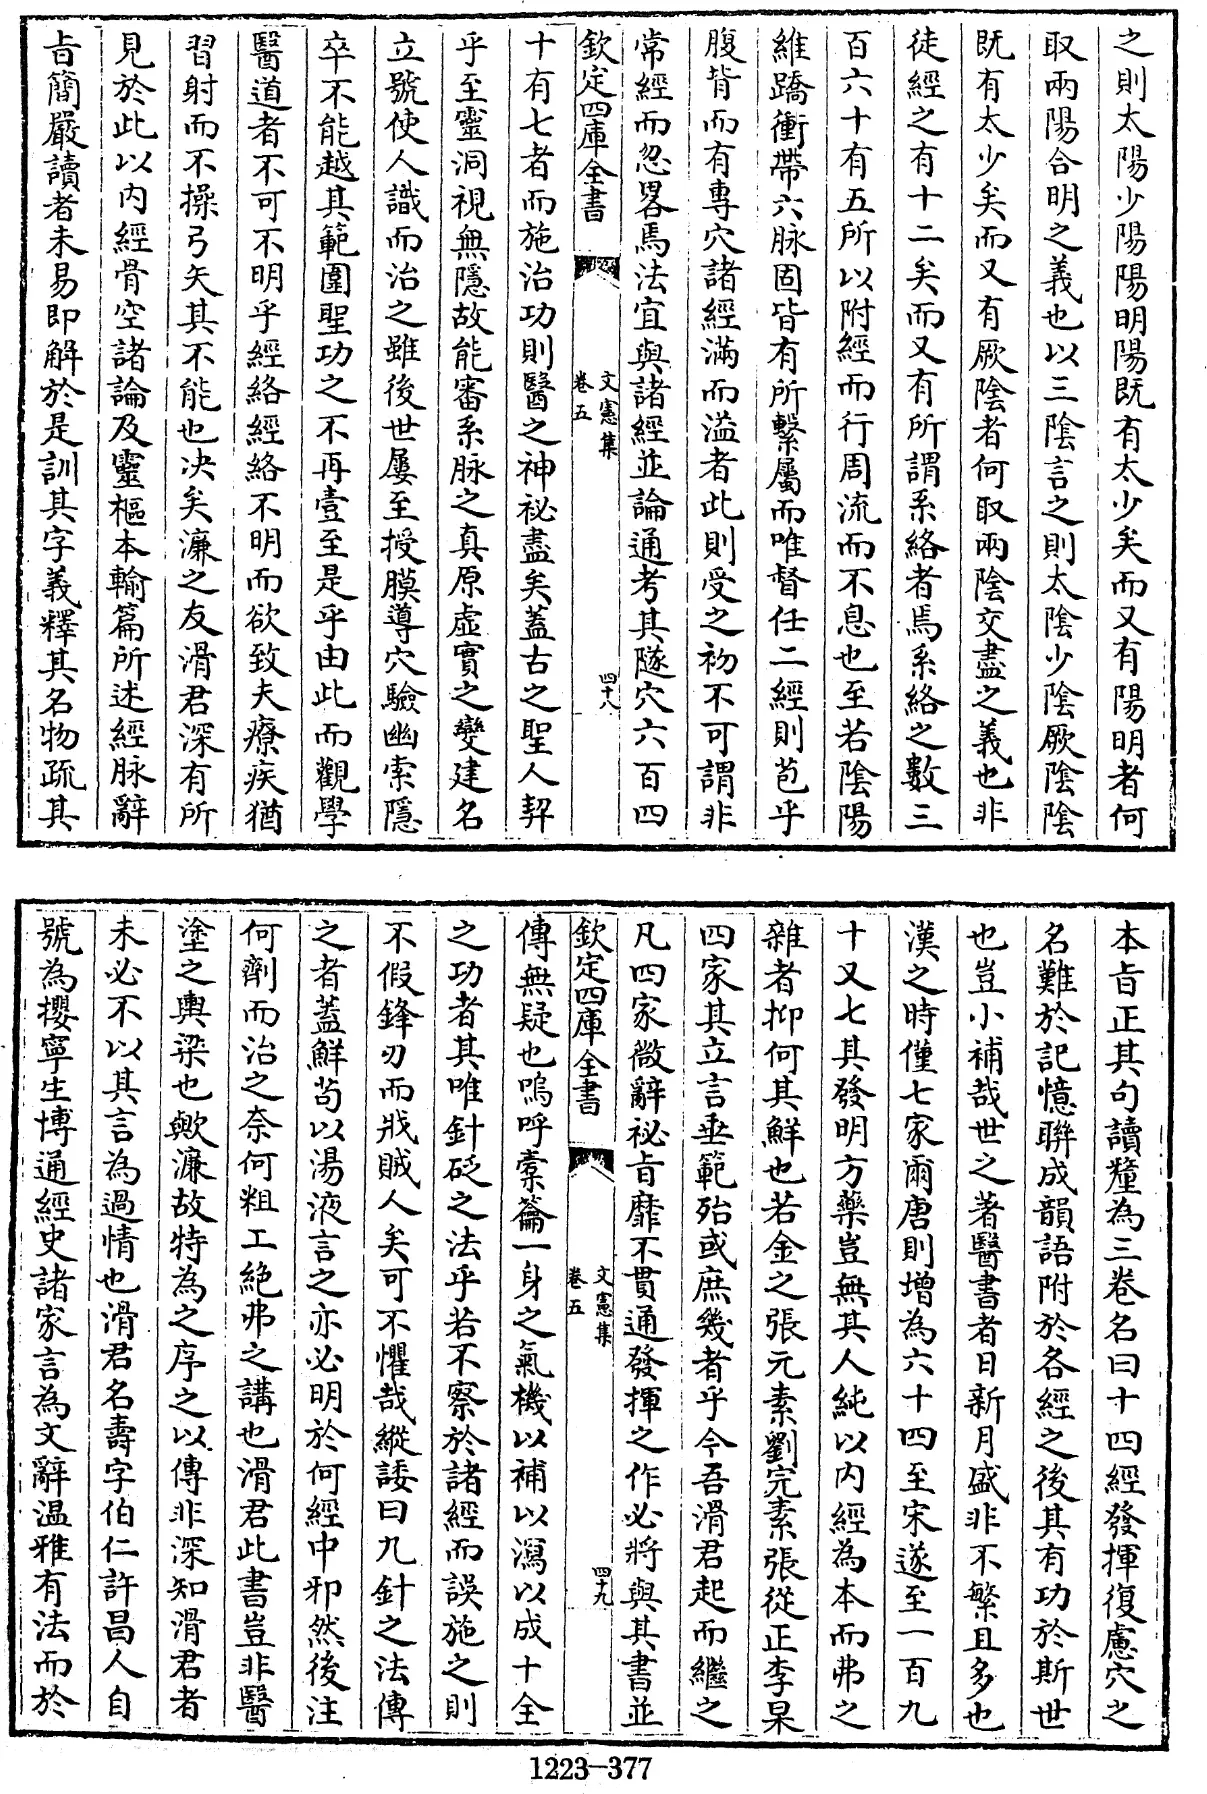 之則太陽少陽陽明陽既有太少矣而又有陽明者何
取兩陽合明之義也以三陰言之則太陰少陰厥陰陰
既有太少矣而又有厥陰者何取兩陰交盡之義也非
徒經之有十二矣而又有所謂系絡者焉系絡之數三
百六十有五所以附經而行周流而不息也至若陰陽
維蹻衝帶六脉固皆有所繫屬而唯督任二經則苞乎
腹背而有專穴諸經滿而溢者此則受之初不可謂非
常經而忽畧焉法宜與諸經並論通考其隧穴六百四
欽定四庫全書
文憲集
卷五
四十八
十有七者而施治功則醫之神祕盡矣蓋古之聖人契
乎至靈洞視無隱故能審系脉之真原虛實之變建名
立號使人識而治之雖後世屢至授膜導穴驗幽索隱
卒不能越其範圍聖功之不再壹至是乎由此而觀學
醫道者不可不明乎經絡經絡不明而欲致夫療疾猶
習射而不操弓矢其不能也决矣濂之友滑君深有所
見於此以内經骨空諸論及靈樞本輸篇所述經脉辭
㫖簡嚴讀者未易即解於是訓其字義釋其名物疏其
本㫖正其句讀釐為三卷名曰十四經發揮復慮穴之
名難於記憶聮成韻語附於各經之後其有功於斯世
也豈小補哉世之著醫書者日新月盛非不繁且多也
漢之時僅七家爾唐則增為六十四至宋遂至一百九
十又七其發明方藥豈無其人純以内經為本而弗之
雜者抑何其鮮也若金之張元素劉完素張從正李杲
四家其立言垂範殆或庶幾者乎今吾滑君起而繼之
凡四家微辭祕㫖靡不貫通發揮之作必將與其書並
欽定四庫全書
文憲集
卷五
四十九
傳無疑也嗚呼橐籥一身之氣機以補以瀉以成十全
之功者其唯針砭之法乎若不察於諸經而誤施之則
不假鋒刃而戕賊人矣可不懼哉縱諉曰九針之法傳
之者蓋鮮苟以湯液言之亦必明於何經中邪然後注
何劑而治之奈何粗工絶弗之講也滑君此書豈非醫
塗之輿梁也歟濂故特為之序之以傳非深知滑君者
未必不以其言為過情也滑君名壽字伯仁許昌人自
號為攖寧生博通經史諸家言為文辭温雅有法而於
1223-377